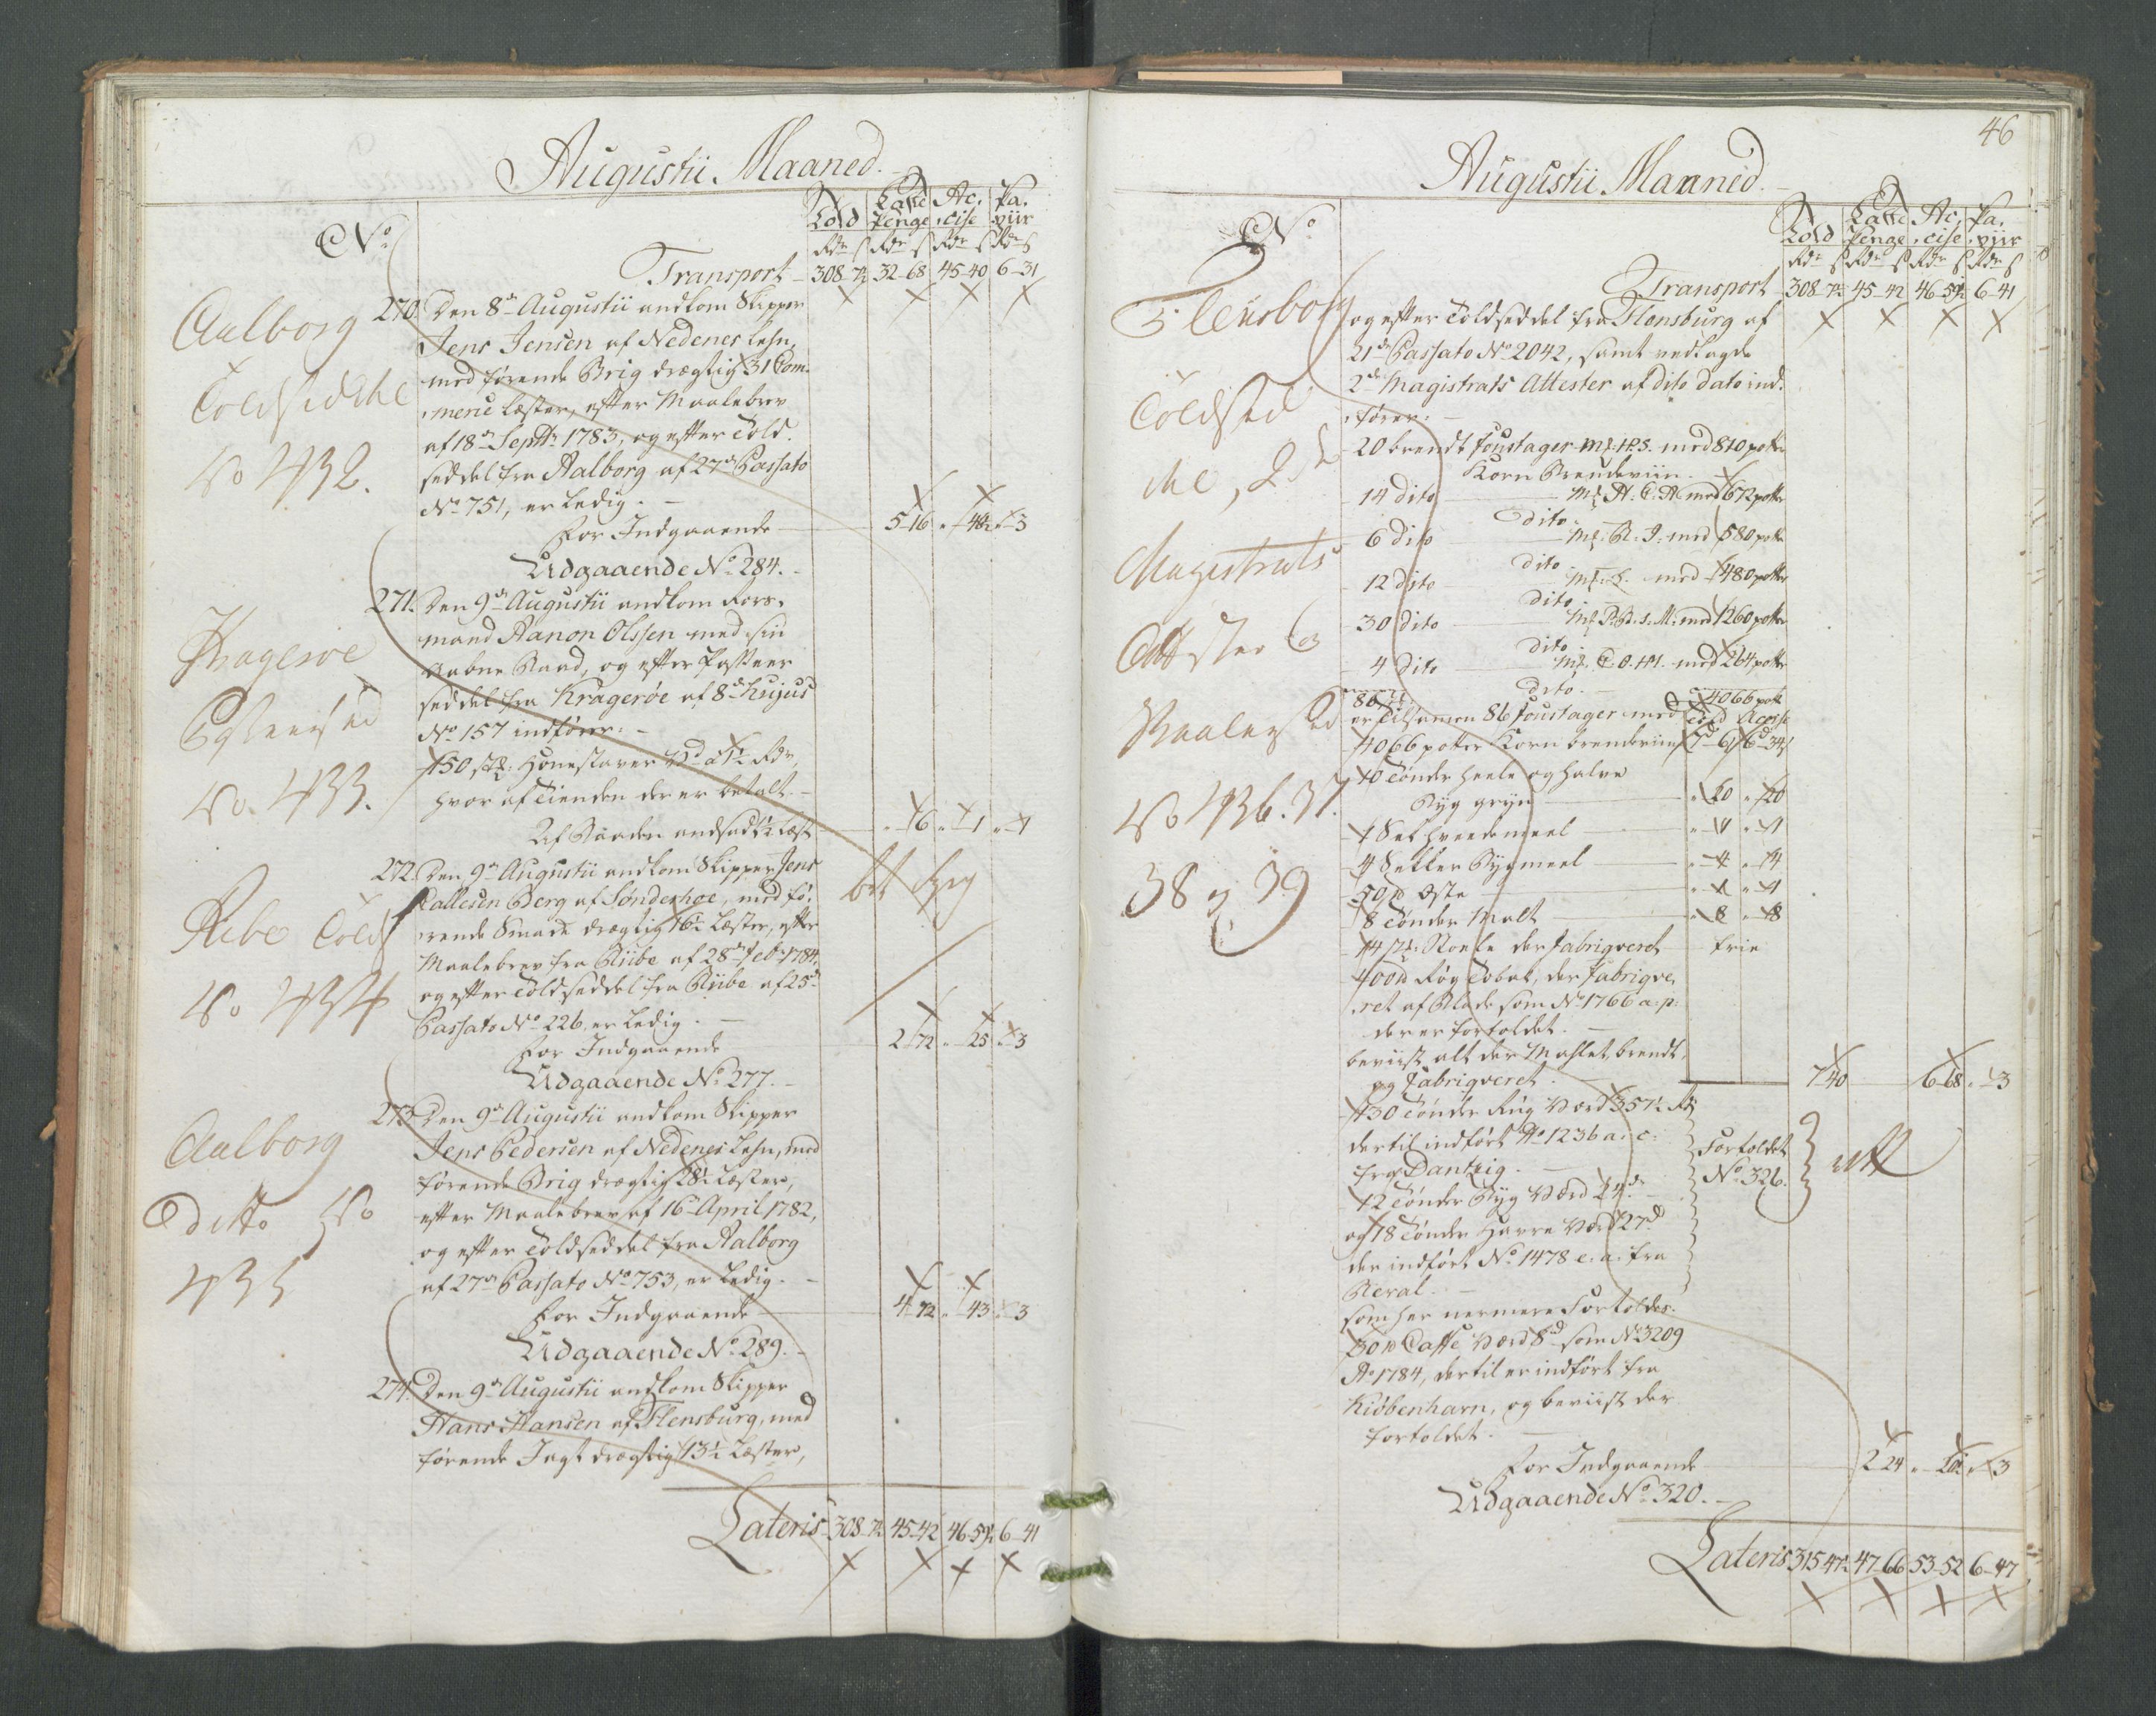 Augustii Maaned.
No
Told Laste Penge Ac,cise Pa,piir
Rdr s Rdr s Rdr s Rdr s
Transport 308 7½ 32-68 45-40 6-31
Aalborg
Toldseddel
No 432.
270. Den 8de Augustii ankom Skipper
Jens Jensen af Nedenes Lehn,
med førende Brig drægtig 31 Com,
merce Læster, efter Maalebrev
af 18de Septbr 1783, og efter Told,
seddel fra Aalborg af 27de Passato
No 751, er Ledig. -
For Indgaaende 5-16 " 44½ " 3
Udgaaende No 284.
Kragerøe
Passeersed
No. 433.
271. Den 9de Augustii ankom Fors,
mand Aanon Olssen med sin
aabne Baad, og efter Passeer
seddel fra Kragerøe af 8de hujus
No 157 indfører: -
150 stk: Hønestaver Værd a 1½ Rdr,
hvor af Tienden der er betalt -
Af Baaden ansadt ½ Læst " 6 " 1 " 1
Ribe Tolds
No 434
272. Den 9de Augustii ankom Skipper Jens
Kallesen Berg af Sønderhoe, med fø,
rende Smake drægtig 16½ Læster, efter
Maalebrev fra Riibe af 28de Feb: 1784
og efter Toldseddel fra Riibe af 25de
Passato No 226. er Ledig. -
For Indgaaende 2-72 " 25 " 3
Udgaaende No 277. -
Aalborg
Ditto No
435
273. Den 9de Augustii ankom Skipper
Jens Pedersen af Nedenes Lehn, med
førende Brig drægtig 28½ Læster,
efter Maalebrev af 16de April 1782,
og efter Toldseddel fra Aalborg
af 27de Passato No 753, er Ledig. -
For Indgaaende 4-72 " 43 " 3
Udgaaende No 289. -
274. Den 9de Augustii ankom Skipper
Hans Hansen af Flensburg, med
førende Jagt drægtig 13½ Læster,
Lateris 308-7½ 45-42 46-59½ 6-41
46
Augustii Maaned.
No
Told Laste Penge Ac,cise Pa,piir
Rdr s Rdr s Rdr s Rdr s
Transport 308-7½ 45-42 46-59½ 6-41
Flensborg
Toldsed
del, 2de
Magistrats
Attester
Maalersed
No 436. 37.
38 og 39
og efter Toldseddel fra Flensburg af
21de Passato No 2042, samt vedlagde
2de Magistrats Attester af dito Dato ind,
fører: -
20 brændt Foustager Mk: H.S. med 810 potter
Korn Brændeviin -
14 dito Mk A. C. A med 672 potter
dito
6 dito Mk. B. I: med 580 potter
dito
12 dito Mk: L. med 480 potter
dito
30 dito Mk P. R. S. M: med 1260 potter
dito
4 dito Mk. C. O. H. med 264 potter
dito
86 4066 pott
er Tilsamen 86 Foustager med Told Accise
4066 potter Korn brændeviin 7-61 6-34
10 Tønder heele og halve
Byg gryn " 20 " 20
1 Sæk hvedemeel " 4 " 4
4 Sækker Bygmeel " 4 " 4
50 lb Oste " 1 " 1
8 Tønder Malt " 8 " 8
14 st: Stoele der Fabriqveret frie
400 lb Røg Tobak, der Fabriqve,
ret af Blade som No 1766 a: p:
der er fortoldet. -
beviist alt der Mahlet, brendt,
og Fabriqveret. - 7-40 6-68 " 3
130 Tønder Rug Værd 357½ Rdr
dertil indført No 1236 a: c:
fra Dantzig. -
12 Tønder Byg Værd 24 dr
og 18 Tønder Havre Værd 27 d
der indført No 1478 e. a. fra
Reval. -
Fortoldet
No 326.
som her nermere Fortoldes.
30 lb Caffe Værd 8 d som No 3209
Ao 1784, dertil er indført fra
Kiøbenhavn, og beviist der
fortoldet. -
For Indgaaende 2-24 " 20½ " 3
Udgaaende No 320. -
Lateris 315-47½ 47-66 53-52 6-47